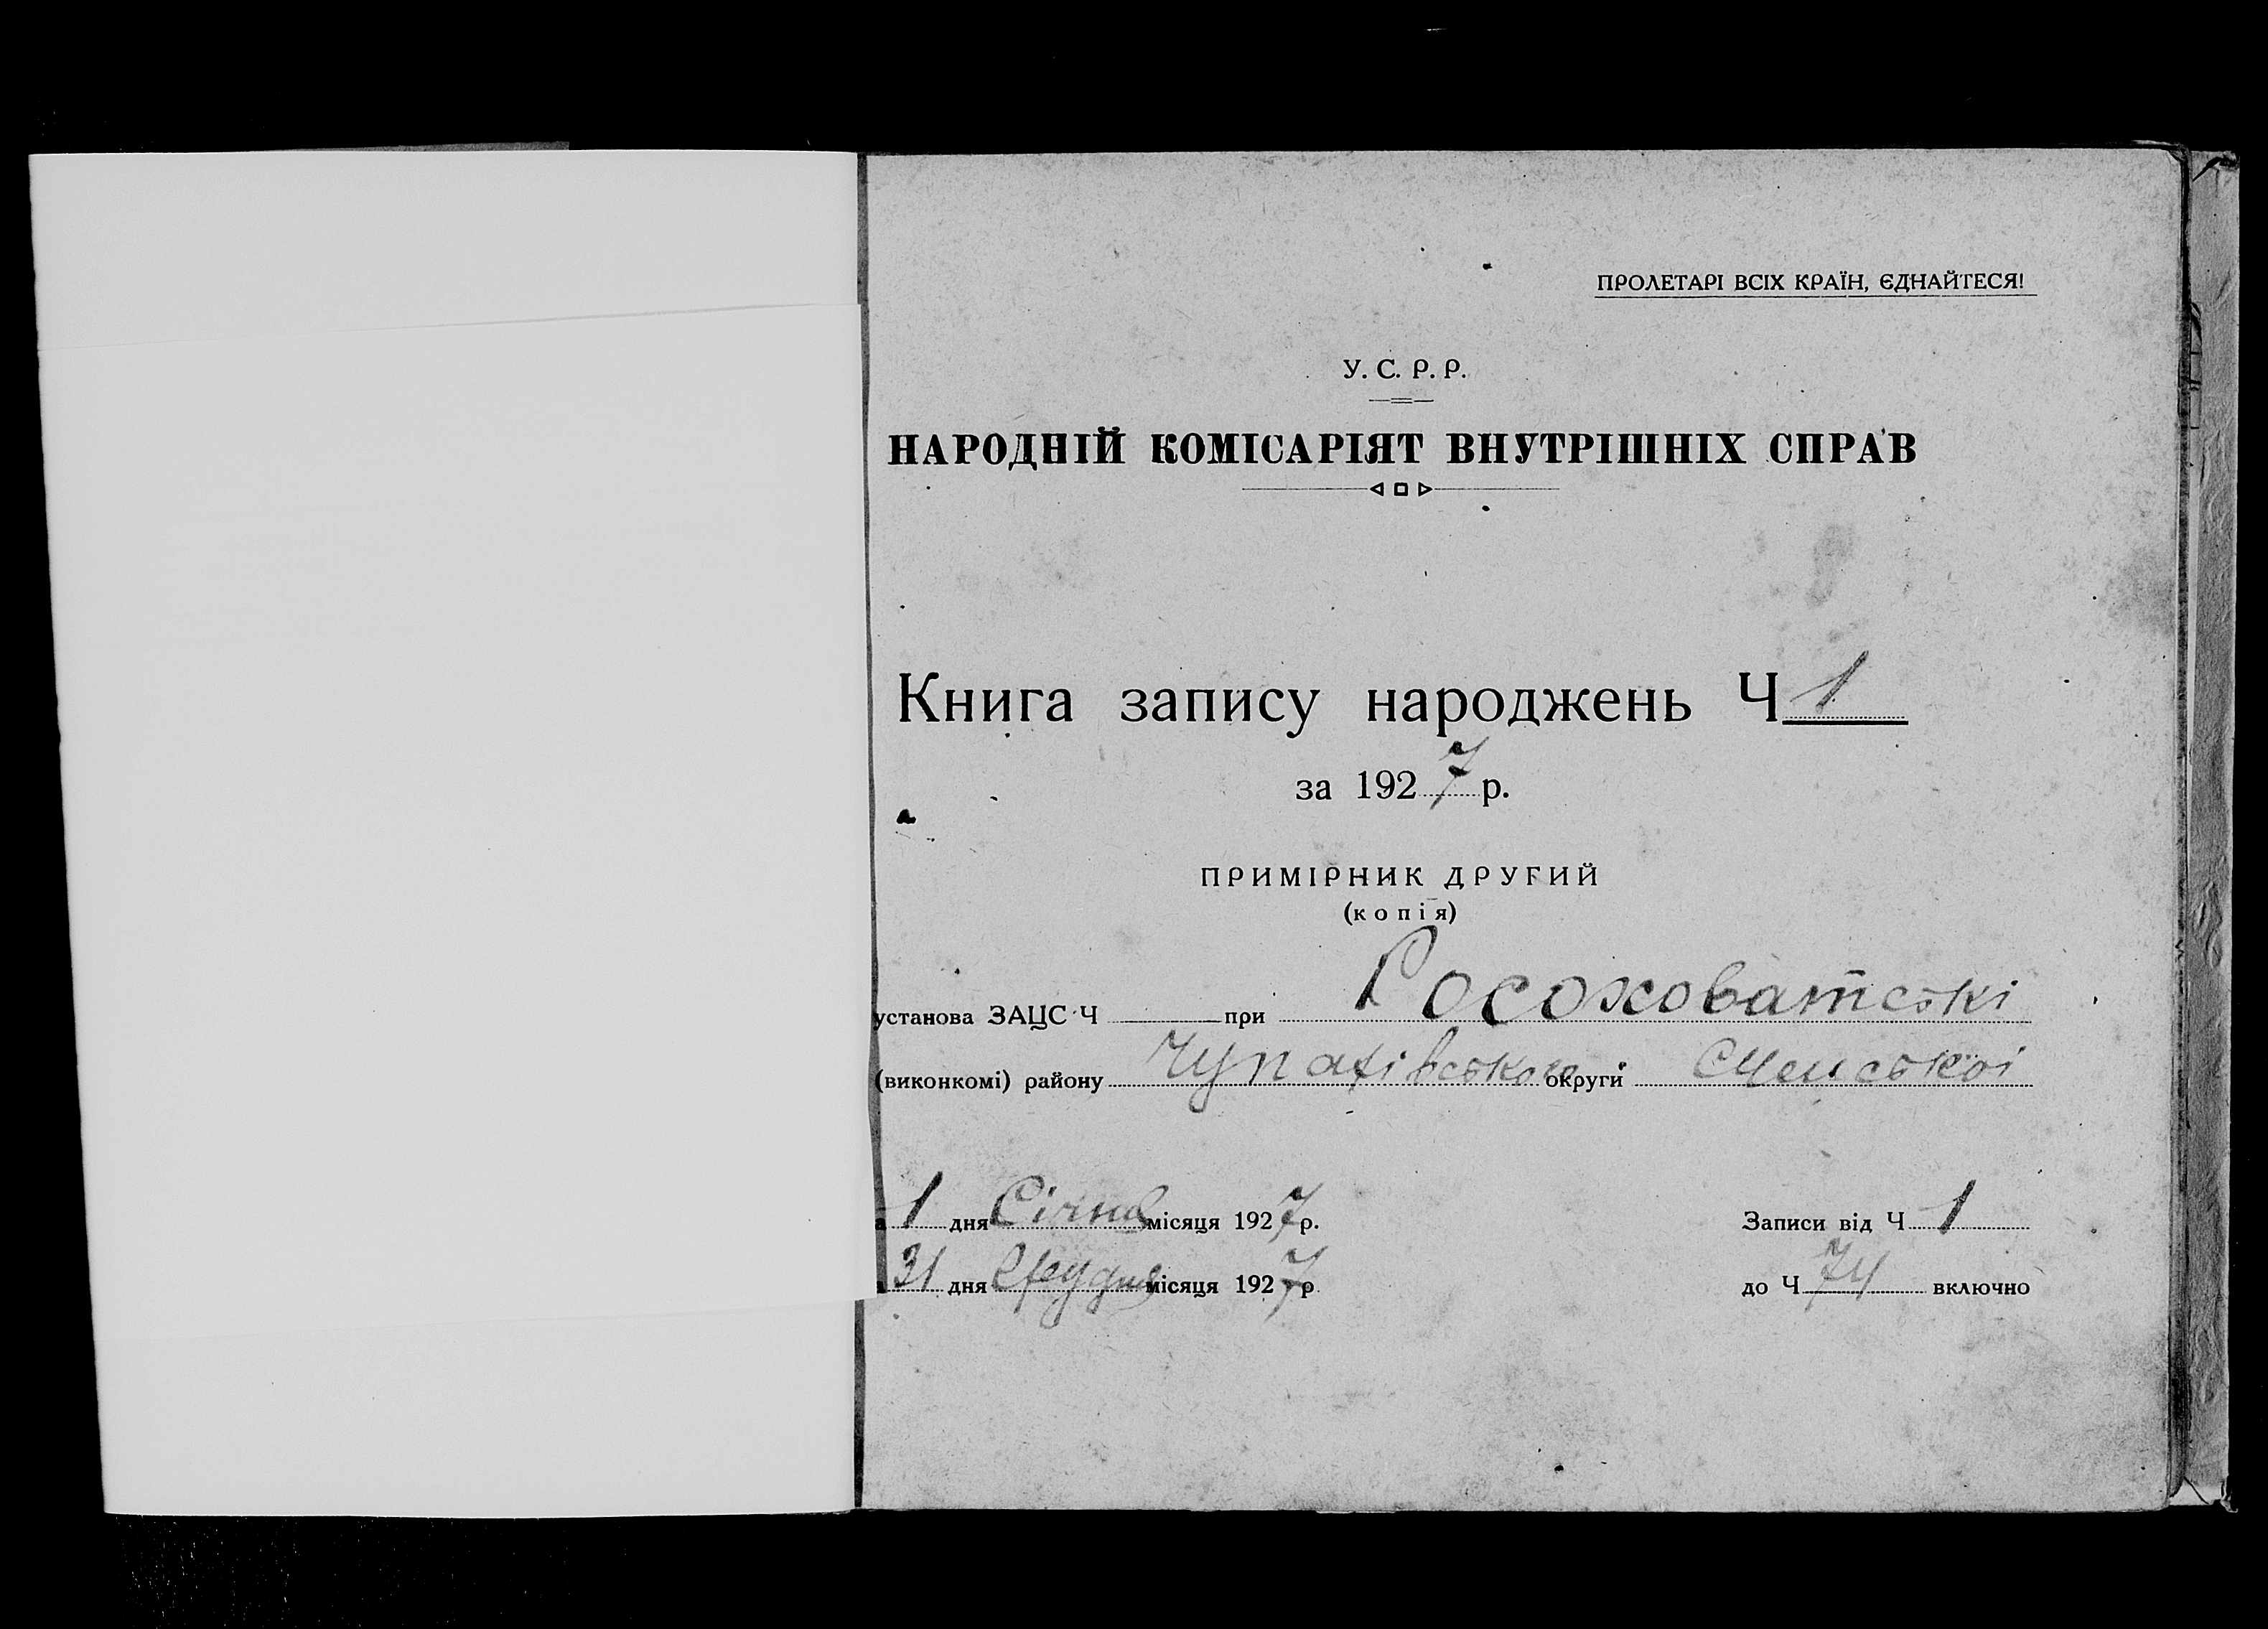 ПРОЛЕТАРІ ВСІХ КРАЇН, ЄДНАЙТЕСЯ!
У. С. Р. Р.
НАРОДНІЙ КОМІСАРІЯТ ВНУТРІШНІХ СПРАВ
Книга запису народжень Ч 1
за 1927 р.
ПРИМІРНИК ДРУГИЙ
(копія)
установа ЗАЦС Ч при Росоховатській
(виконкомі) району Чупахівського округи
1 дня Січня місяця 1927 р.
31 дня Грудня місяця 1927 р
Записи від Ч 1
до Ч 74 включно